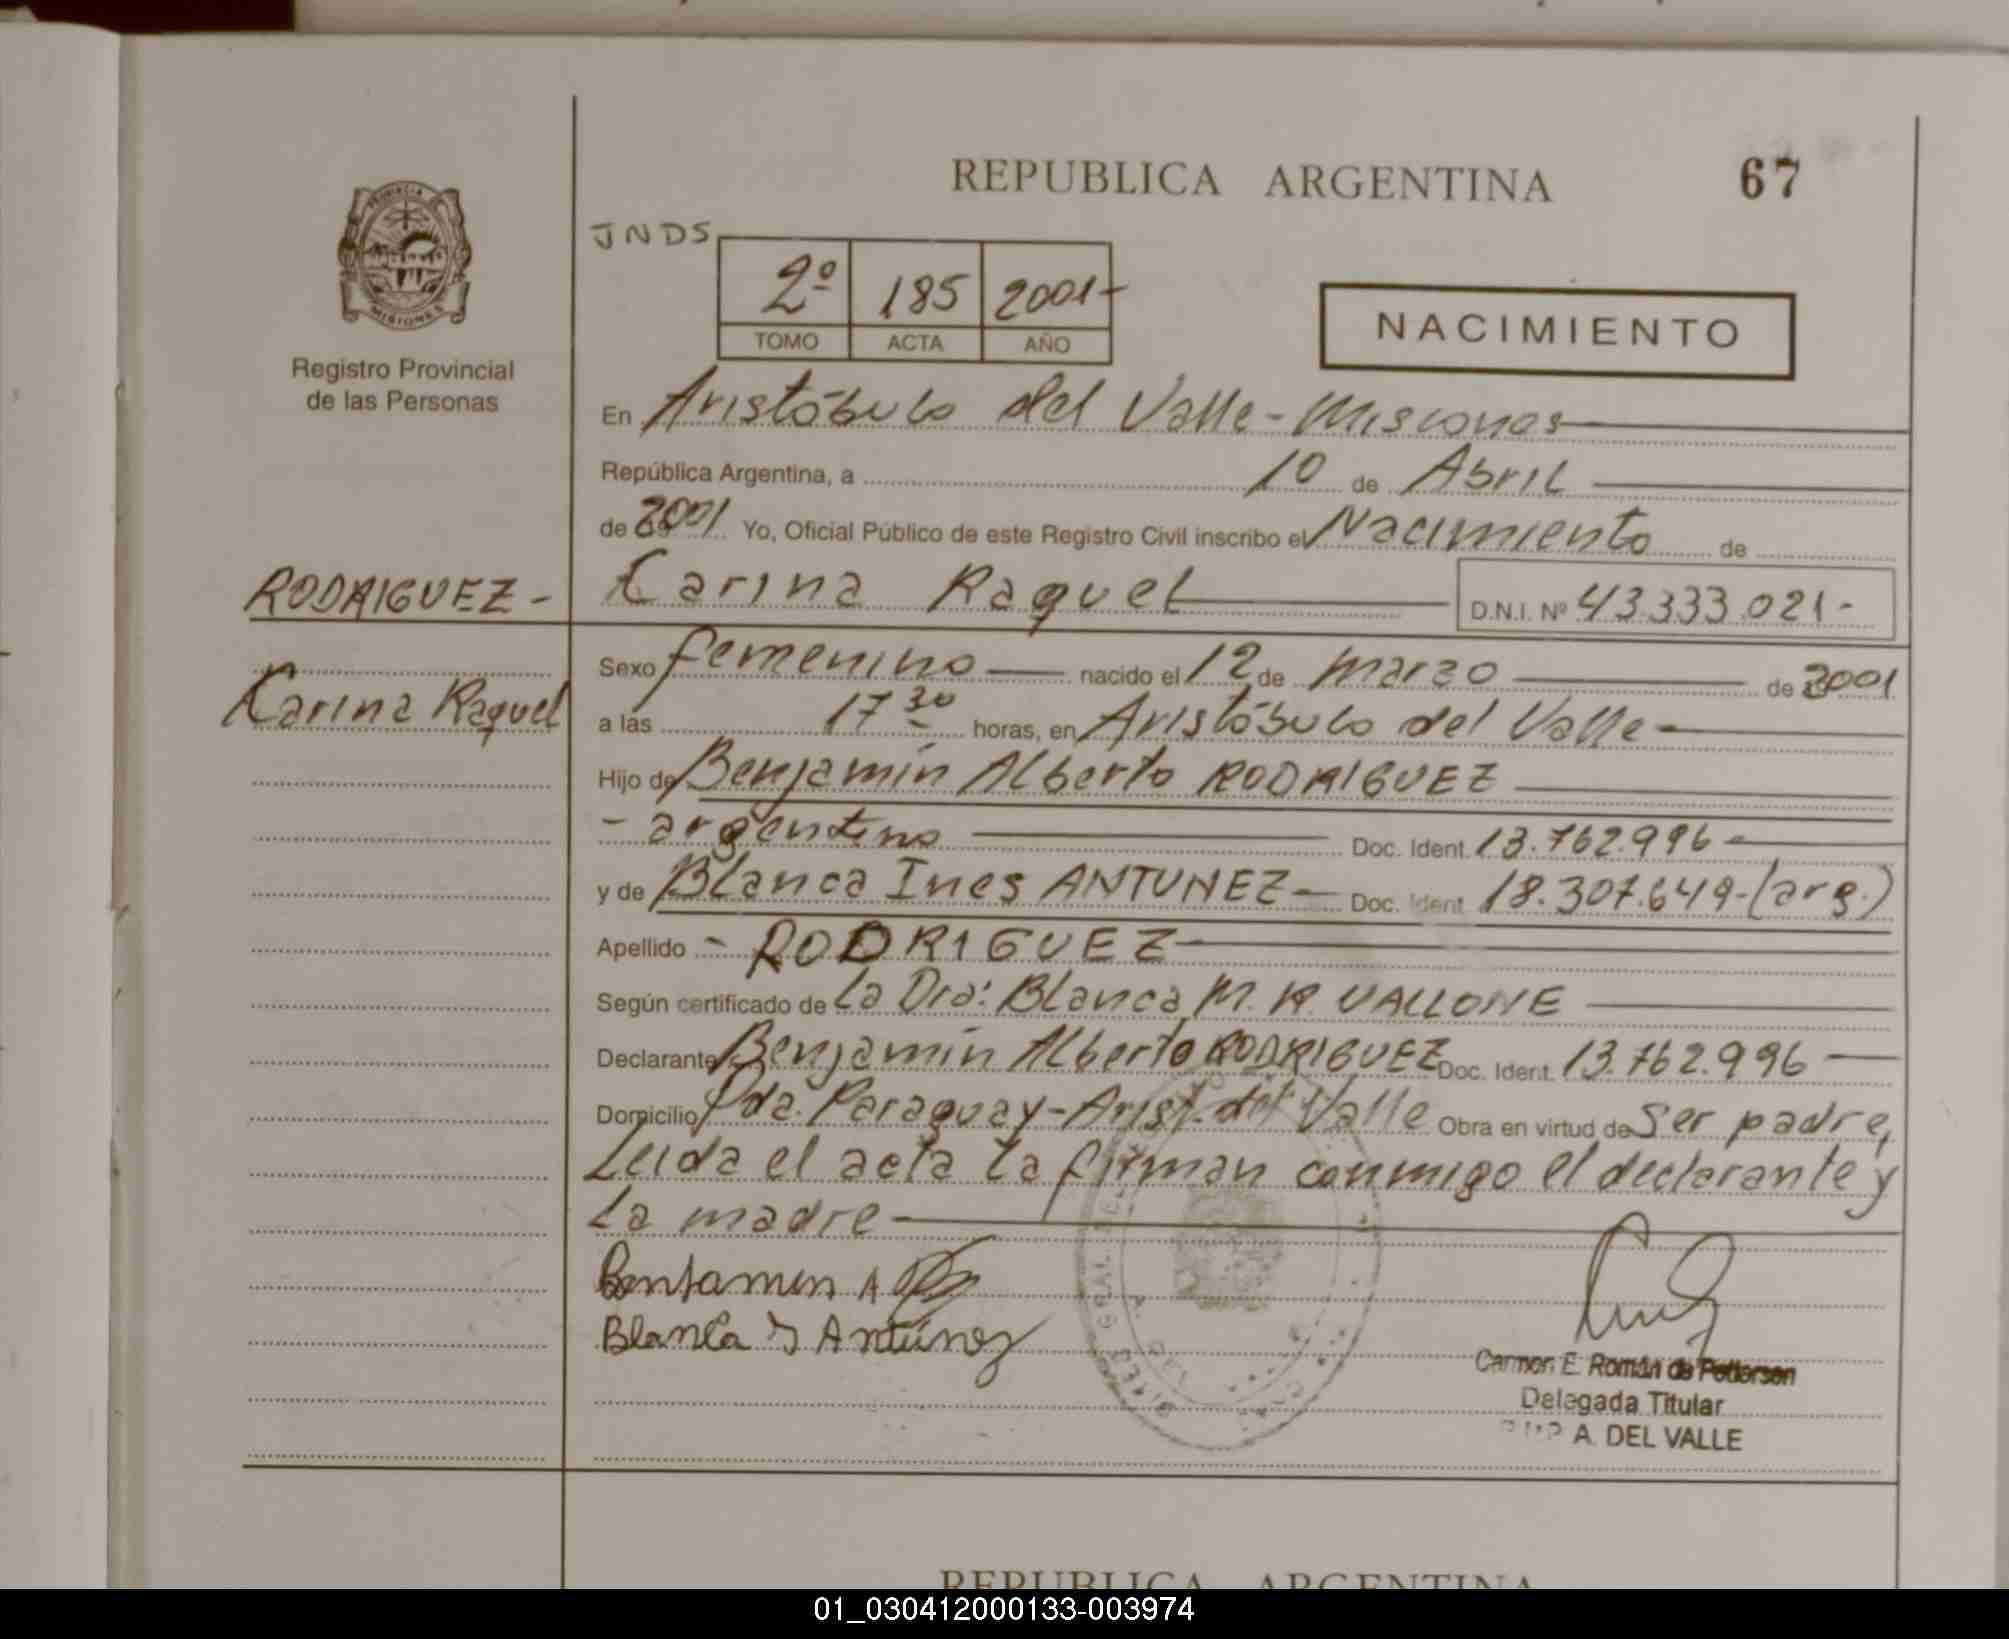 REPUBLICA ARGENTINA
67
PROVINCIA DE
MISIONES
Registro Provincial
de las Personas
JNDS
2º 185 2001-
TOMO ACTA AÑO
NACIMIENTO
En Aristóbulo del Valle - Misiones
República Argentina, a 10 de Abril
de 2001 Yo, Oficial Público de este Registro Civil inscribo el Nacimiento de
RODRIGUEZ -
Carina Raquel D.N.I. Nº 43.333.021-
Carina Raquel
Sexo femenino nacido el 12 de marzo de 2001
a las 17 30 horas, en Aristóbulo del Valle -
Hijo de Benjamín Alberto RODRIGUEZ
- argentino Doc. Ident. 13.762.996 -
y de Blanca Ines ANTUNEZ - Doc. Ident. 18.307.649-(arg.)
Apellido - RODRIGUEZ
Según certificado de la Dra: Blanca M. R. VALLONE
Declarante Benjamín Alberto RODRIGUEZ Doc. Ident. 13.762.996
Domicilio Pda. Paraguay - Arist. del Valle Obra en virtud de Ser padre,
Leida el acta la firman conmigo el declarante y
la madre
Benjamin A
Blanca I Antúnez
Carmen E. Román de Pedersen
Delegada Titular
A. DEL VALLE
REPUBLICA ARGENTINA
01_030412000133-003974